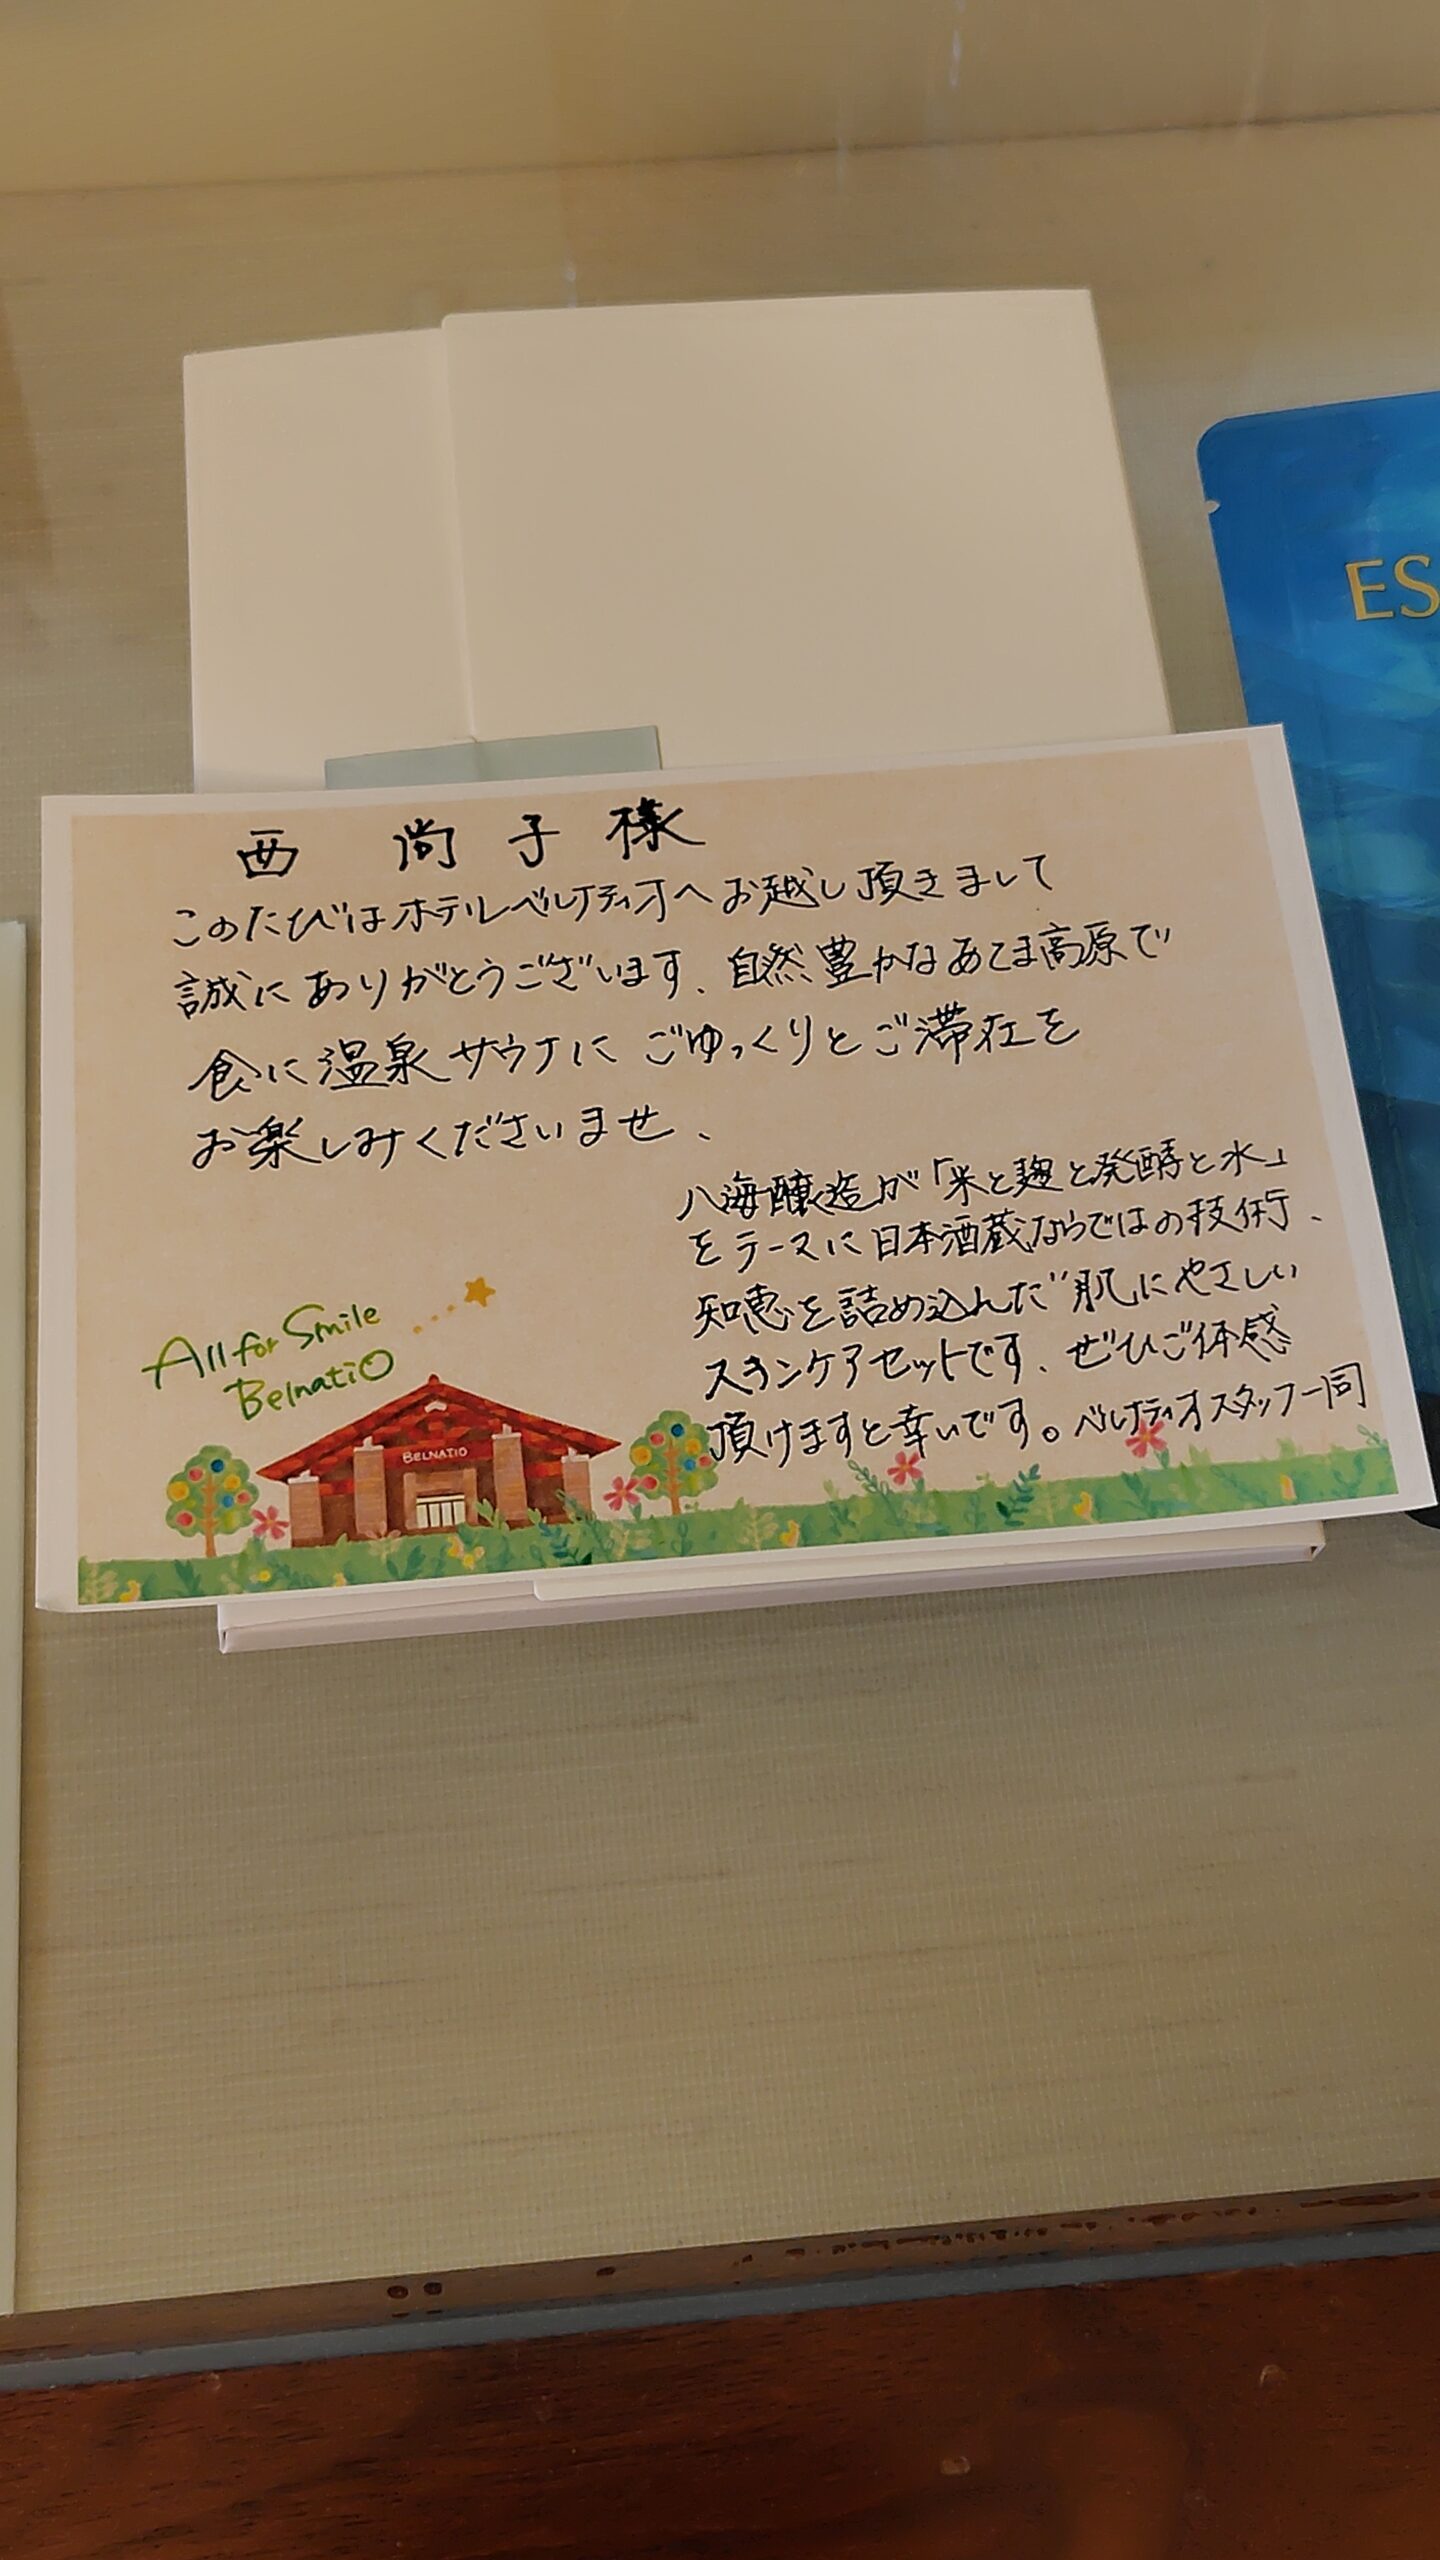 西 尚子様
このたびはホテルベルナティオへお越し頂きまして
誠にありがとうございます、自然豊かなあてま高原で
食に温泉サウナにごゆっくりとご滞在を
お楽しみくださいませ、
八海醸造が「米と麹と発酵と水」
をテーマに日本酒蔵ならではの技術、
知恵を詰め込んだ"肌にやさしい
スキンケアセットです、ぜひご体感
頂けますと幸いです。ベルナティオスタッフ一同
All for Smile
Belnatio
BELNATIO
ES